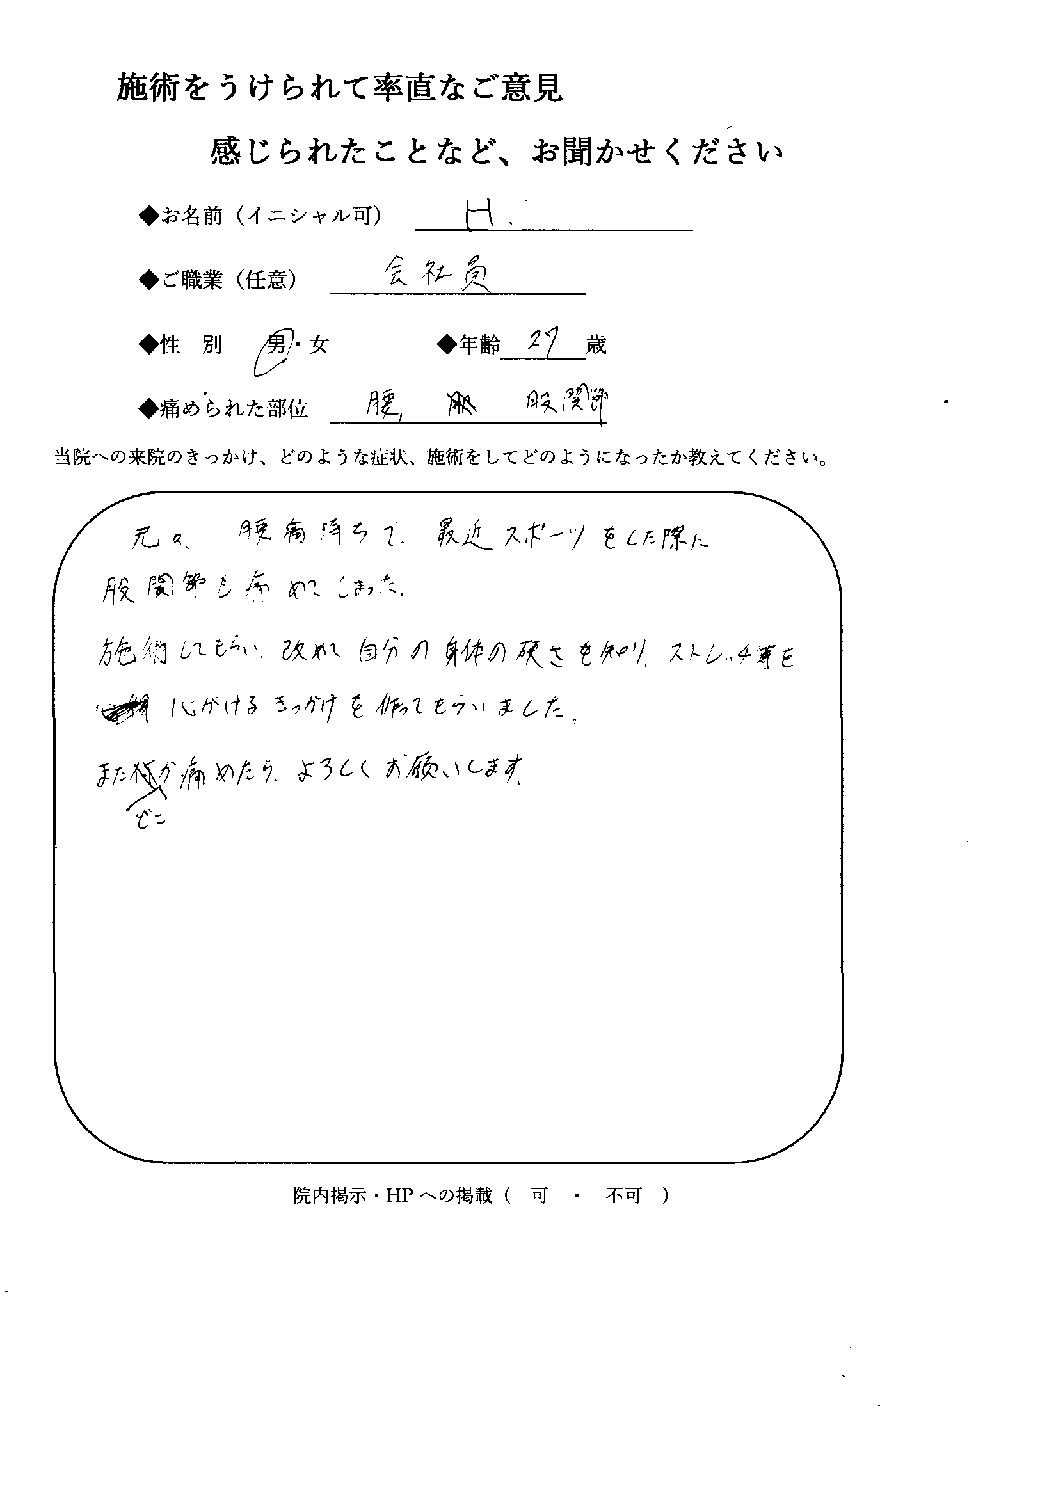 施術をうけられて率直なご意見
感じられたことなど、お聞かせください
◆お名前（イニシャル可） H.
◆ご職業（任意） 会社員
◆性 別 男・女 ◆年齢 27 歳
◆痛められた部位 腰, 股関節
当院への来院のきっかけ、どのような症状、施術をしてどのようになったか教えてください。
元々、腰痛持ちで、最近スポーツをした際に
股関節も痛めてしまった。
施術してもらい、改めて自分の身体の硬さを知り、ストレッチ等を
心がけるきっかけを作ってもらいました。
またどこか痛めたら、よろしくお願いします。
院内掲示・HPへの掲載（ 可 ・ 不可 ）